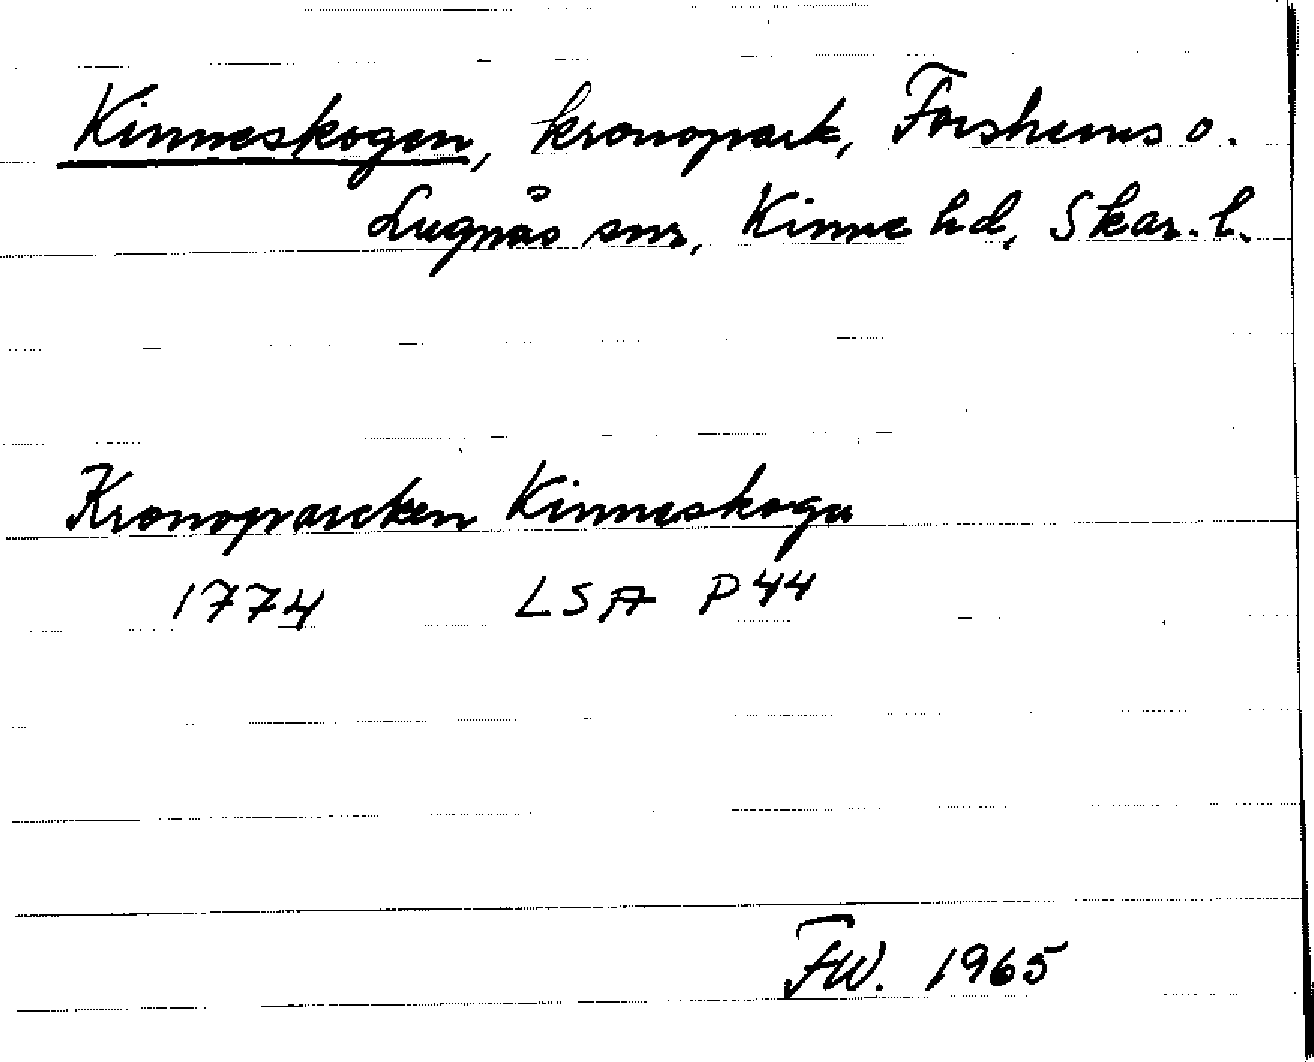 Kinneskogen, kronopark, Forshems o.
Lugnås snr, Kinne hd, Skar. l.
Kronoparcken Kinneskogu
1774 LSA P44
FW. 1965